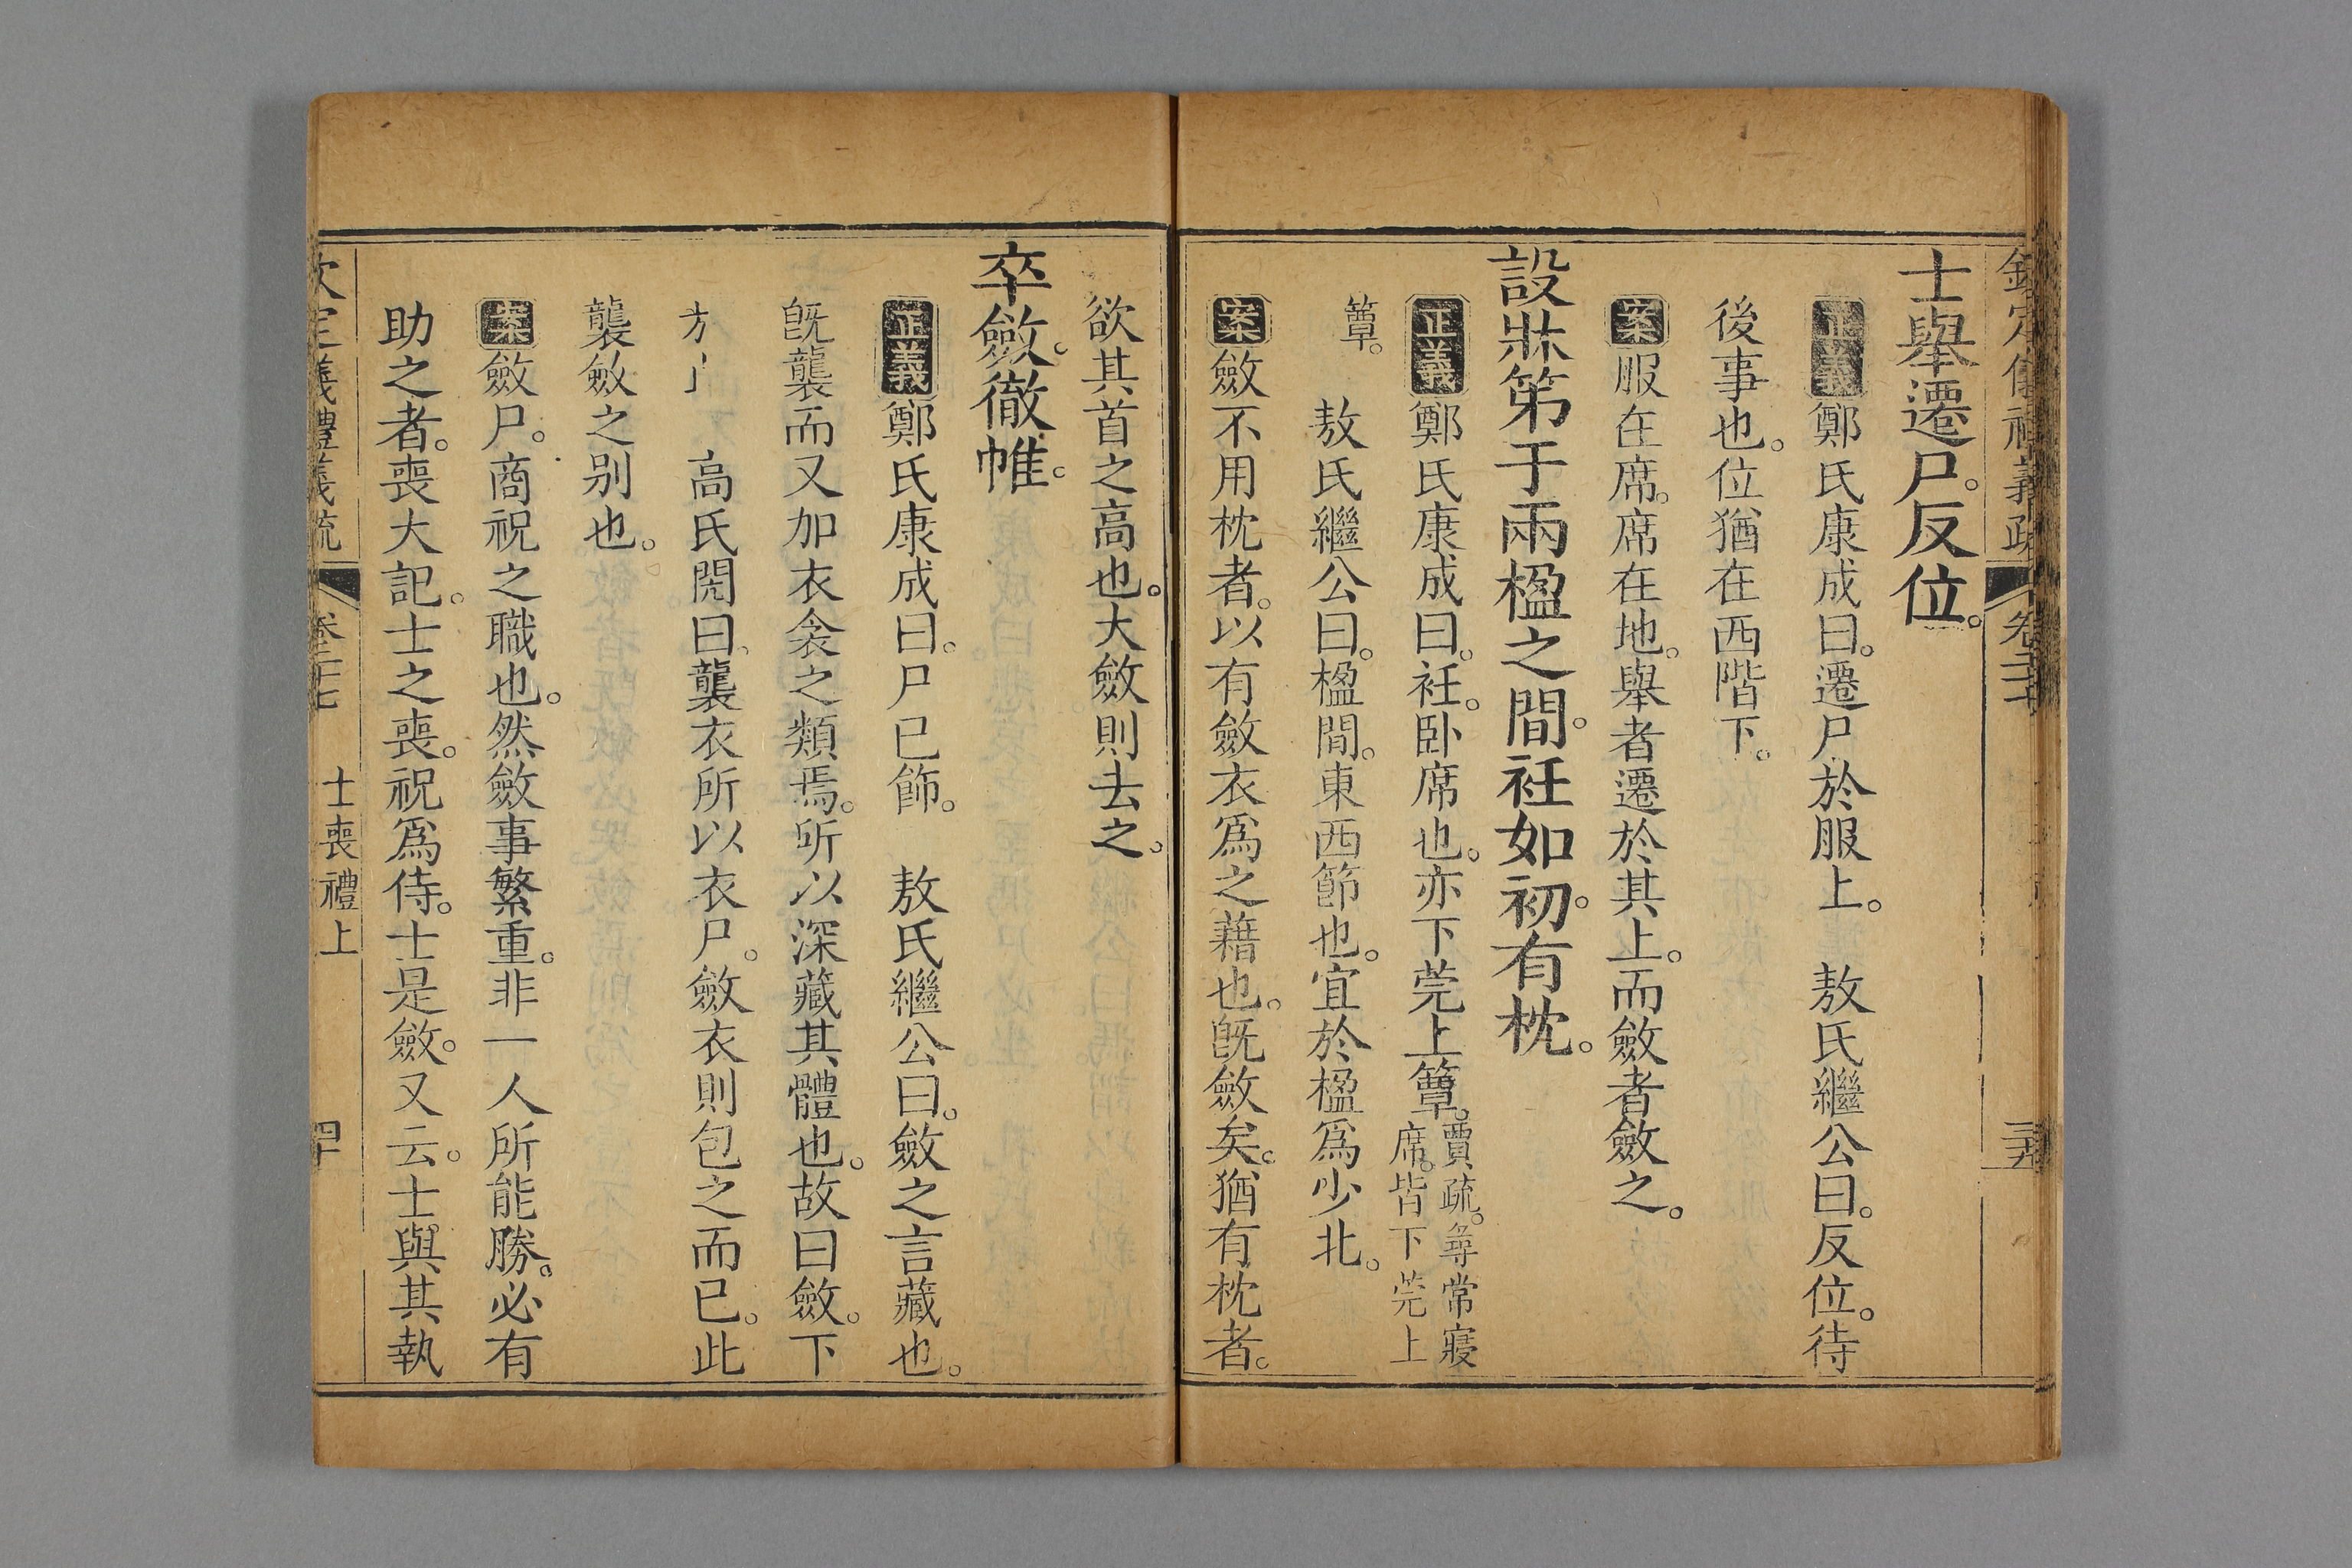 士舉遷尸。反位。
正義鄭氏康成曰。遷尸於服上。 敖氏繼公曰。反位。待
後事也。位猶在西階下。
案服在席。席在地。舉者遷於其上。而斂者斂之。
設牀第于兩楹之間。衽如初。有枕。
正義鄭氏康成曰。衽。卧席也。亦下莞上簟。賈疏。尋常寢
席。皆下莞上
簟。 敖氏繼公曰。楹間。東西節也。宜於楹為少北。
案斂不用枕者。以有斂衣為之藉也。既斂矣。猶有枕者。
欲其首之高也。大斂則去之。
卒斂。徹帷。
正義鄭氏康成曰。尸已飾。 敖氏繼公曰。斂之言藏也。
既襲而又加衣衾之類焉。所以深藏其體也。故曰斂。下
高氏閌曰。襲衣所以衣尸。斂衣則包之而已。此
襲斂之別也。
案斂尸。商祝之職也。然斂事繁重。非一人所能勝。必有
助之者。喪大記。士之喪。祝為侍。士是斂。又云。士與其執
卷二十七 士喪禮上